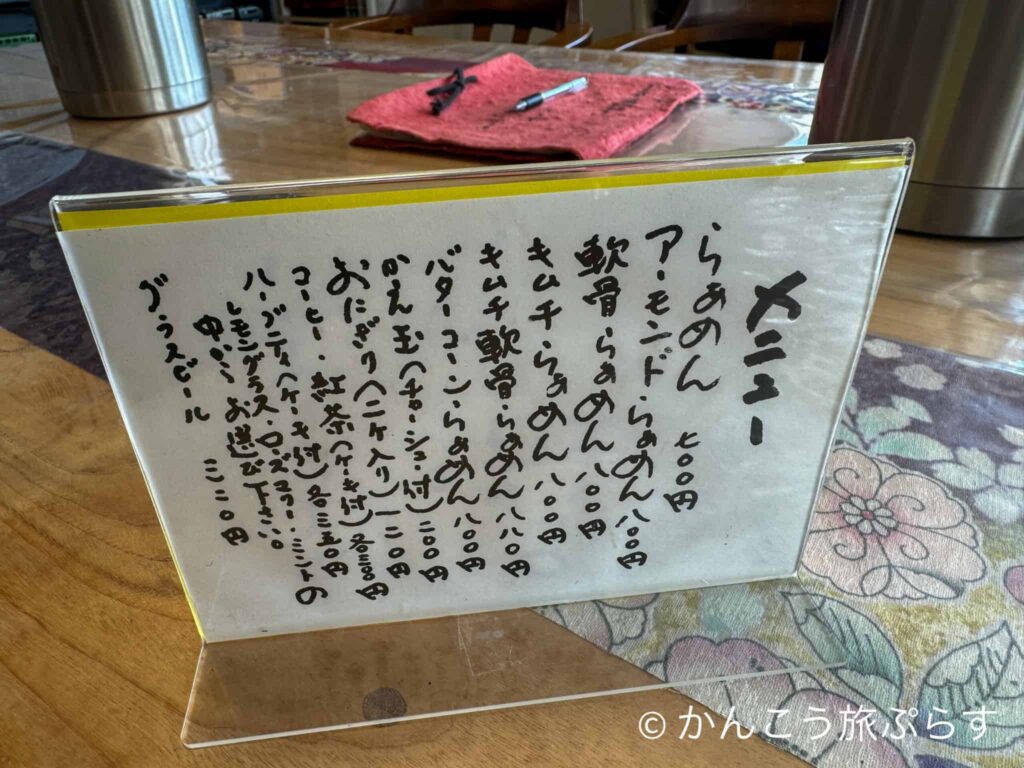 メニュー
らぁめん 七〇〇円
アーモンド・らぁめん 八〇〇円
軟骨・らぁめん 八〇〇円
キムチ・らぁめん 八〇〇円
キムチ軟骨・らぁめん 八八〇円
バターコーン・らぁめん 八〇〇円
かえ玉(チャーシュー付) 二〇〇円
おにぎり(二ケ入り) 一二〇円
コーヒー・紅茶(ケーキ付) 各三〇〇円
ハーブティ(ケーキ付) 各三五〇円
レモングラス・ローズマリー・ミントの
中からお選び下さい。
グラスビール 二二〇円
© かんこう旅ぷらす